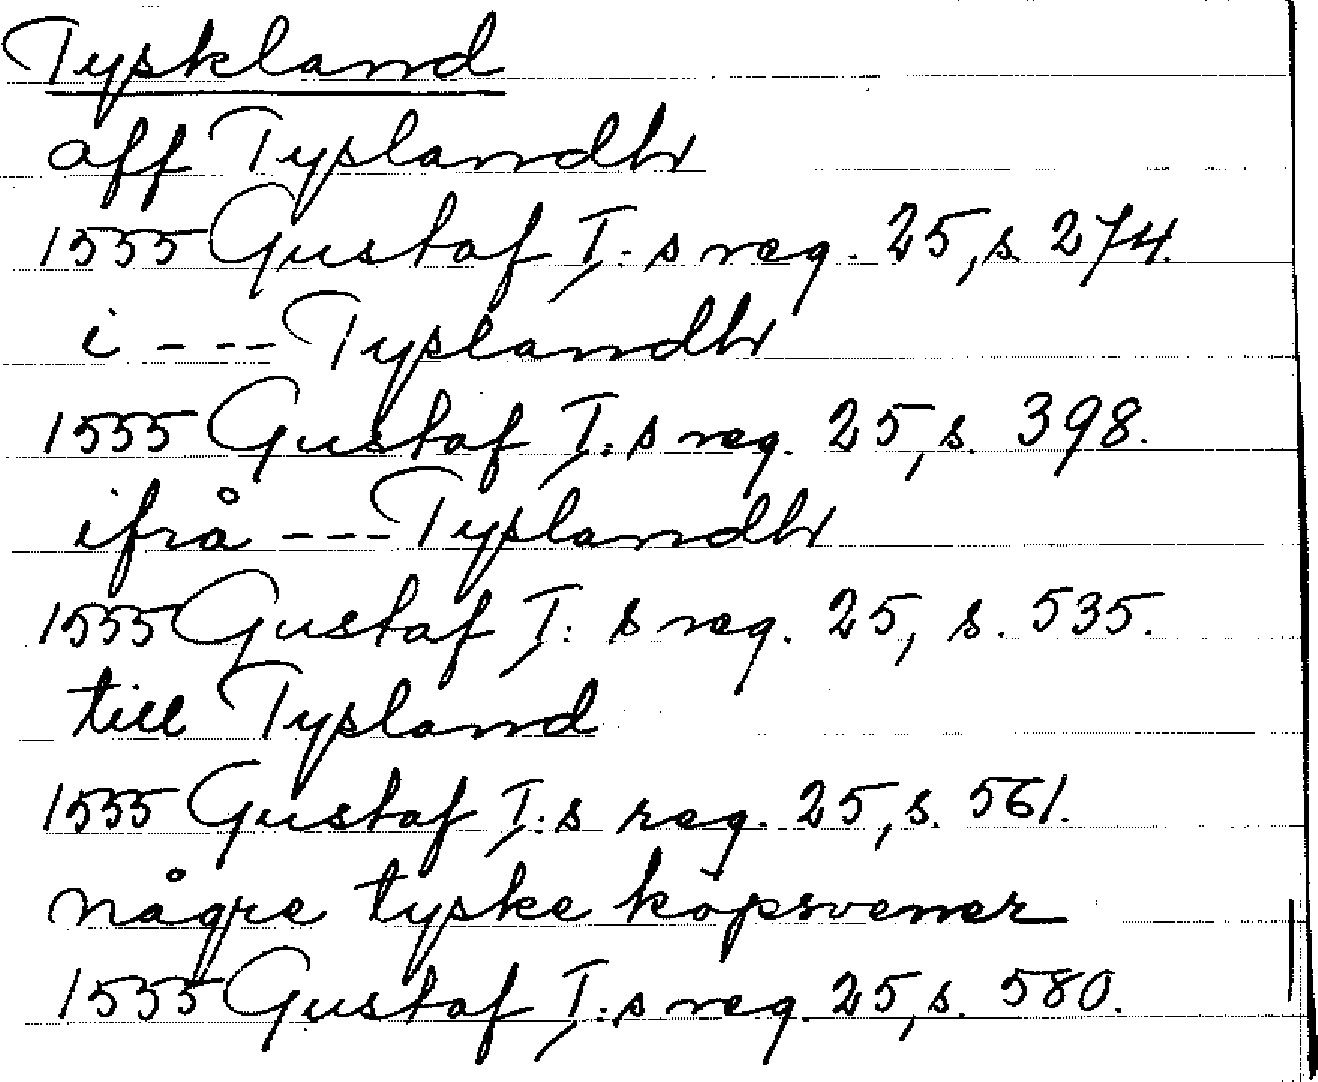 Tyskland
aff Tyslandh
1555 Gustaf I:s reg. 25, s. 274.
i --- Tyslandh
1555 Gustaf I:s reg. 25, s. 398.
ifrå --- Tyslandh
1555 Gustaf I:s reg. 25, s. 535.
till Tysland
1555 Gustaf I:s reg. 25, s. 561.
någre tyske köpsvener
1555 Gustaf I:s reg. 25, s. 580.